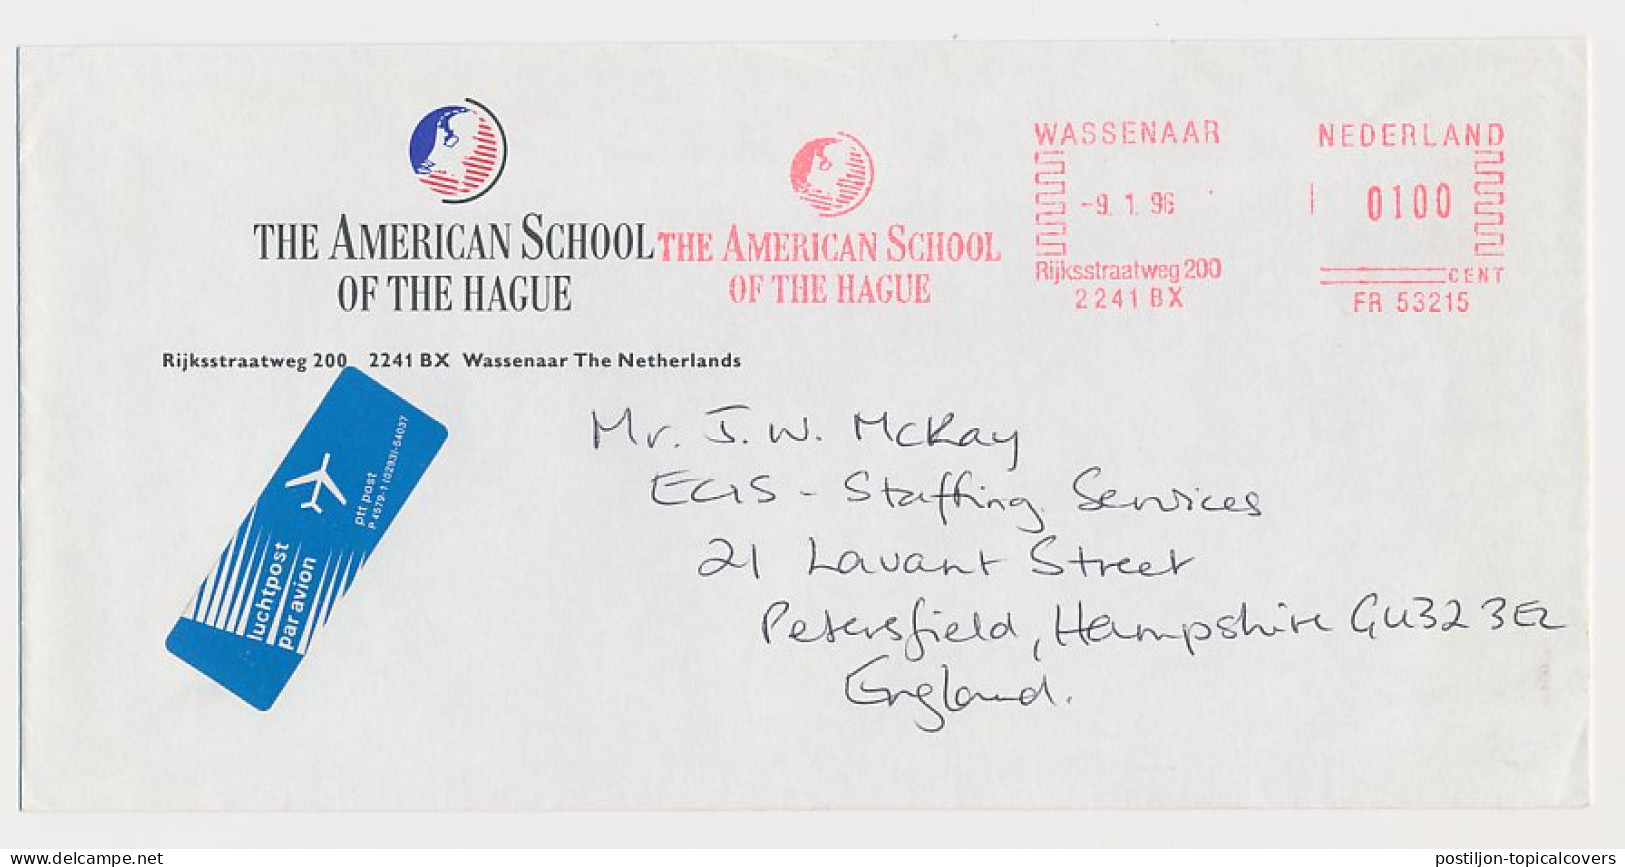 THE AMERICAN SCHOOL
OF THE HAGUE
Rijksstraatweg 200 2241 BX Wassenaar The Netherlands
THE AMERICAN SCHOOL
OF THE HAGUE
WASSENAAR
-9. 1. 96
Rijksstraatweg 200
2241 BX
NEDERLAND
0100
CENT
FR 53215
luchtpost
par avion
ptt post
P 4579-1 (02931-54037
Mr. J. W. McKay
ECIS - Staffing Services
21 Lavant Street
Petersfield, Hampshire GU32 3EL
England.
www.delcampe.net
postiljon-topicalcovers